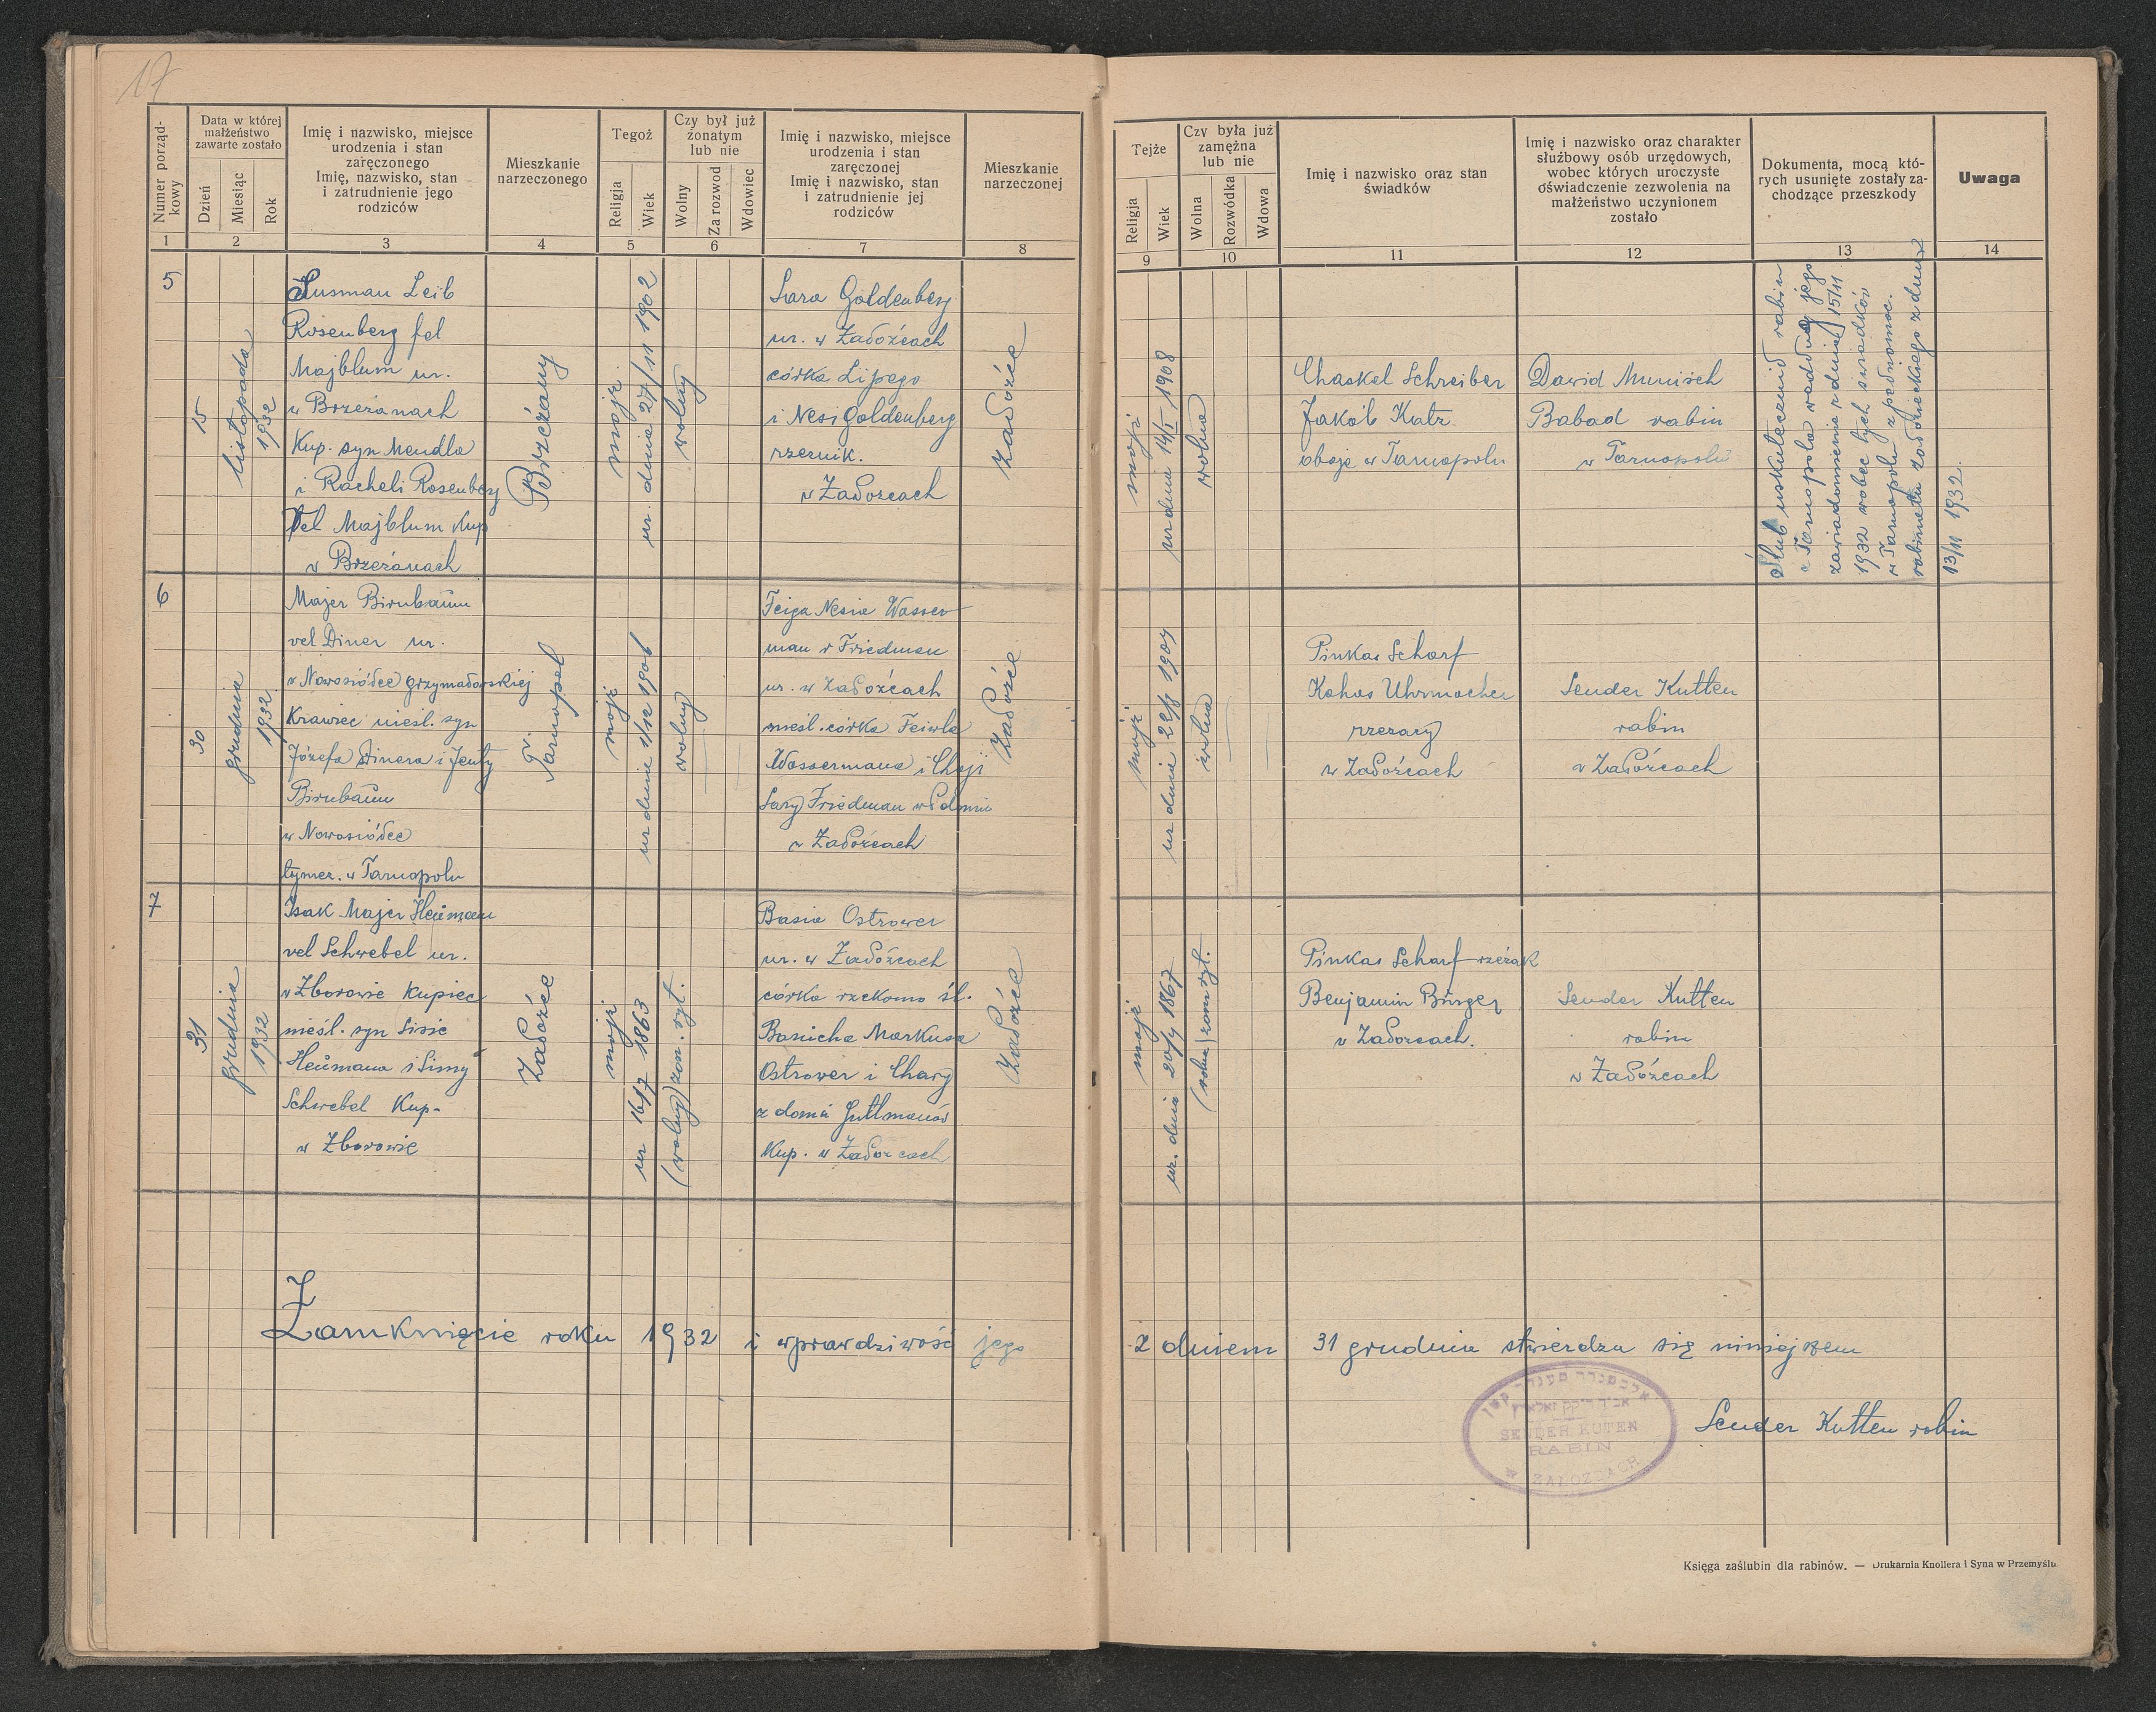 17
Numer porządkowy
Data w której małżeństwo zawarte zostało
Dzień
Miesiąc
Rok
Imię i nazwisko, miejsce
urodzenia i stan
zaręczonego
Imię, nazwisko, stan
i zatrudnienie jego
rodziców
Mieszkanie
narzeczonego
Tegoż
Religja
Wiek
Czy był już
żonatym
lub nie
Wolny
Za rozwod
Wdowiec
Imię i nazwisko, miejsce
urodzenia i stan
zaręczonej
Imię i nazwisko, stan
i zatrudnienie jej
rodziców
Mieszkanie
narzeczonej
1 2 3 4 5 6 7 8
Tejże
Religja
Wiek
Czy była już
zamężna
lub nie
Wolna
Rozwódka
Wdowa
Imię i nazwisko oraz stan
świadków
Imię i nazwisko oraz charakter
służbowy osób urzędowych,
wobec których uroczyste
oświadczenie zezwolenia na
małżeństwo uczynionem
zostało
Dokumenta, mocą któ-
rych usunięte zostały za-
chodzące przeszkody
Uwaga
9 10 11 12 13 14
5
15
listopada
1932
Susman Leib
Rosenberg fel
Majblum ur.
w Brzeżanach
Kup. syn Mendla
i Racheli Rosenberg
fel Majblum Kup
w Brzeżanach
Brzeżany
mojż.
ur. dnia 27/11 1902
wolny
Sara Goldenberg
ur. w Załoźcach
córka Lipego
i Nesi Goldenberg
rzeznik.
w Załozcach
Załoźce
mojż
ur dnia 14/I 1908
wolna
Chaskel Schreiber
Jakób Katz
oboje w Tarnopolu
Dawid Munisch
Babad rabin
w Tarnopolu
Ślub uskutecznił rabin
z Tarnopola według jego
zawiadomienia z dnia 15/11
1932 wobec tych świadków
w Tarnopolu z pełnomoc.
rabinatu załozieckiego z dnia
13/11 1932.
6
30
grudnia
1932
Majer Birnbaum
vel Diner ur.
w Nowosiółce grzymałowskiej
Krawiec nieśl. syn
Józefa Dinera i Jenty
Birnbaum
w Nowosiółce
tymcz. w Tarnopolu
Tarnopol
mojż
ur dnia 1/12 1906
wolny
Feiga Nesia Wasser
man v Friedman
ur. w Załoźcach
nieśl. córka Feiwla
Wassermana i Chaji
Sary Friedman
w Załoźcach
Załoźce
mojż
ur dnia 22/8 1904
wolna
Pinkas Scharf
Kohos Uhrmacher
rzezacy
w Załoźcach
Sender Kutten
rabin
w Załoźcach
7
31
grudnia
1932
Isak Majer Heuman
vel Schwebel ur.
w Zborowie Kupiec
nieśl. syn Sisie
Heumana i Simy
Schwebel Kup-
w Zborowie
Załoźce
mojż
ur 16/7 1863
(wolny) żon. ryt.
Basia Ostrower
ur. w Załoźcach
córka rzekomo śl.
Basicha Markusa
Ostrower i Chary
z domu Guttmanów
Kup. w Załozcach
Załoźce
mojż
ur. dnia 20/4 1867
(wolna) zam ryt.
Pinkas Scharf rzezak
Benjamin Bürger
w Załozcach.
Sender Kutten
rabin
w Załoźcach
Zamknięcie roku 1932 i wprawdziwość jego z dniem 31 grudnia stwierdza się niniejszem
SENDER KUTEN
RABIN
W ZAŁOZCACH
Sender Kutten rabin
Księga zaślubin dla rabinów. — Drukarnia Knollera i Syna w Przemyślu.